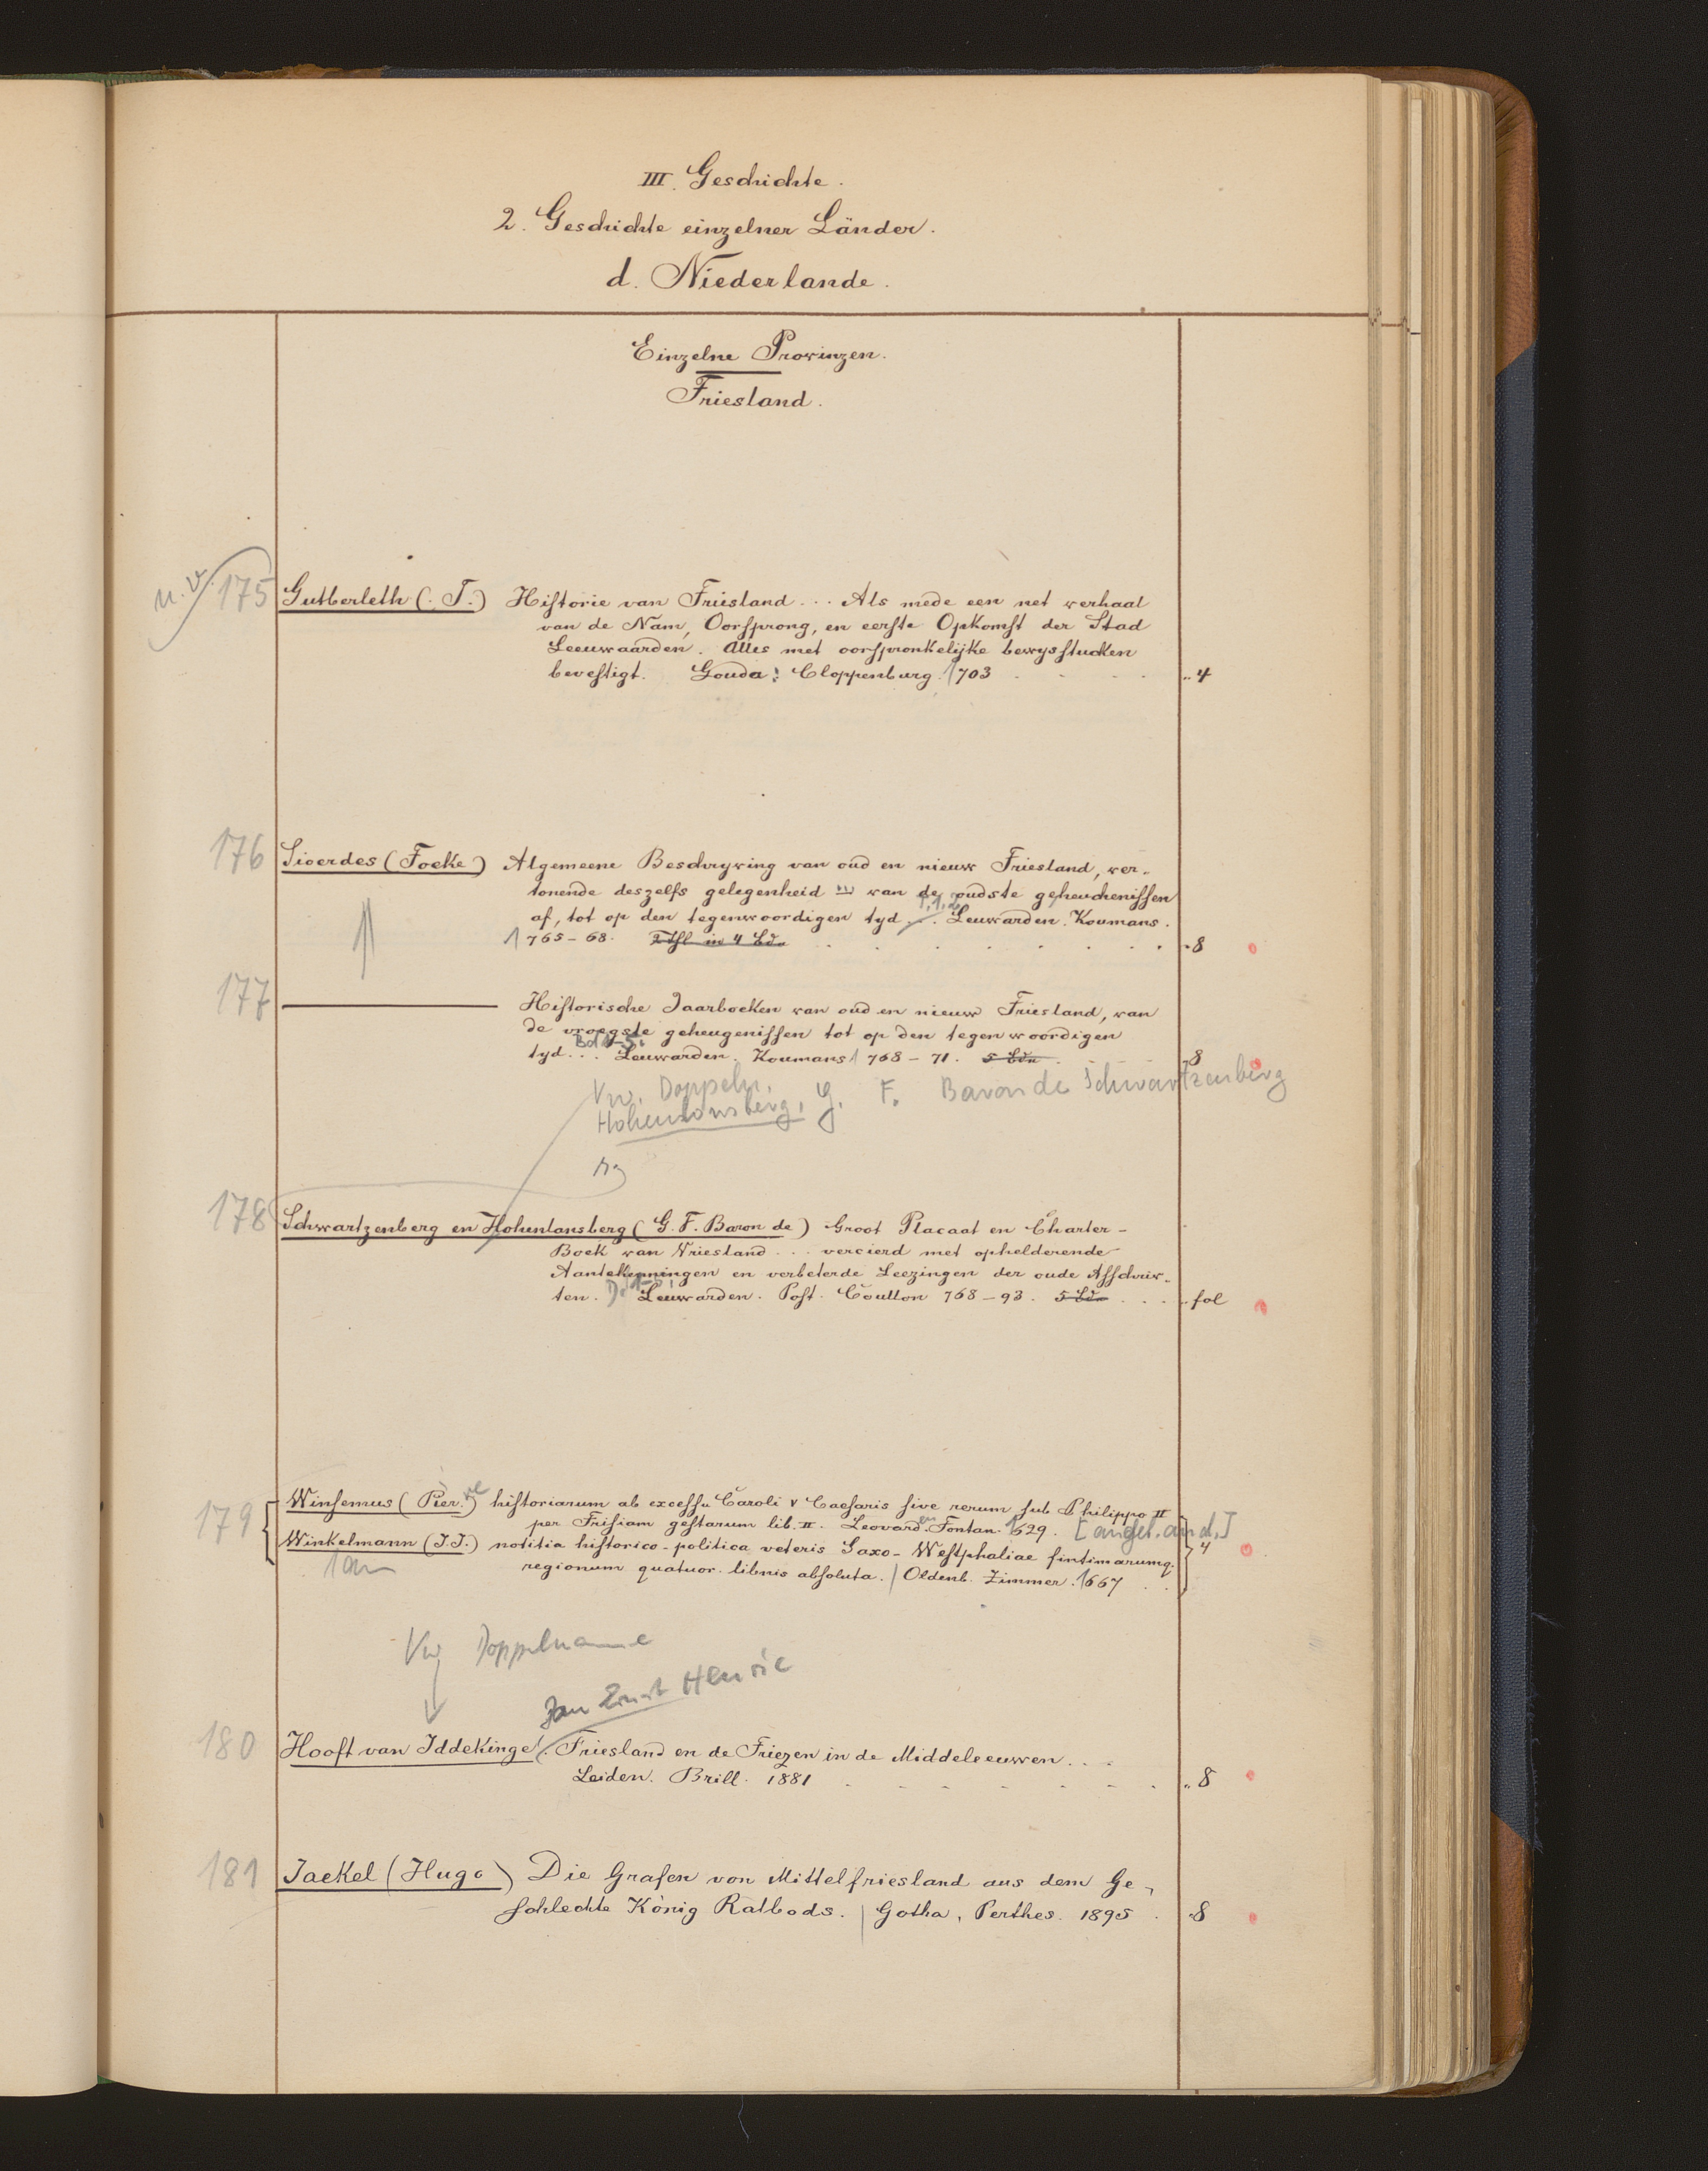 III. Geschichte.
2. Geschichte einzelner Länder.
d. Niederlande.
Einzelne Provinzen.
Friesland.
n. v. 175 Gutberleth (. T.) Historie van Friesland ... Als mede een net verhaal
van de Nam, Oorsprong, en eerste Opkomst der Stad
Leeuwaarden. Alles met oorspronkelijke bewysstucken
bevestigt. Gouda: Cloppenburg. 1703 . . . . „4
176 Sioerdes (Foeke) Algemeene Beschryving van oud en nieuw Friesland, ver-
tonende deszelfs gelegenheid ... van de oudste geheuchenissen
af, tot op den tegenwoordigen tyd ... Leuwarden. Koumans.
1765-68. 2 Thl in 4 Bdn . . . . . . „8
177 ——— Historische Jaarboeken van oud en nieuw Friesland, van
de vroegste geheugenissen tot op den tegenwoordigen
Bd 1-5.
tyd... Leuwarden. Koumans 1768-71. 5 Bdn . „8
Vw. Doppeln.
Hohenlansberg, G. F. Baron de Schwartzenberg
178 Schwartzenberg en Hohenlansberg (G. F. Baron de) Groot Placaat en Charter-
Boek van Vriesland ... vercierd met ophelderende
Aantekenningen en verbeterde Leezingen der oude Afschrif-
ten. Leuwarden. Post. Coulton 768-93. 5 Bdn . . . „fol
179 Winsemus (Pier.) historiarum ab excessu Caroli V Caesaris sive rerum sub Philippo II
per Frisiam gestarum lib. II. Leovarden. Fontan. 1629. [angef. and.]
Winkelmann (J. J.) notitia historico-politica veteris Saxo-Westphaliae fintimarumq. 4
regionum quatuor libris absoluta. | Oldenb. Zimmer. 1667 . .
Vw Doppelname
Jan Ernst Henric
180 Hooft van Iddekinge (. Friesland en de Friezen in de Middeleeuwen...
Leiden. Brill. 1881 . . . . . . . „8
181 Jaekel (Hugo) Die Grafen von Mittelfriesland aus dem Ge-
schlechte König Ratbods. | Gotha, Perthes. 1895 . „8